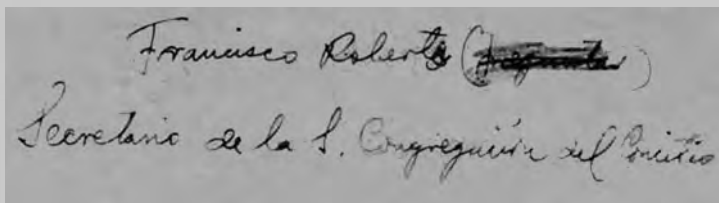 Francisco Roberti (
Secretario de la S. Congregación del Concilio